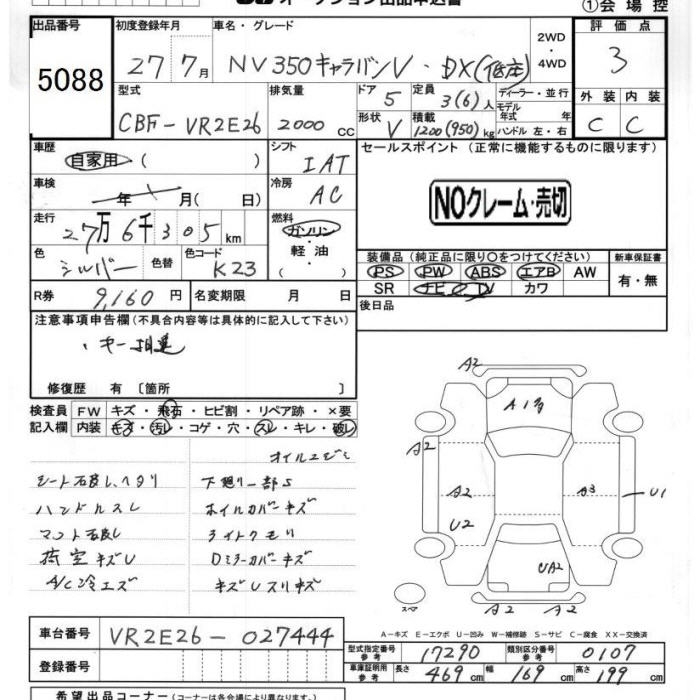 オークション出品申込書
①会場控
出品番号 5088
初度登録年月 27 7月
車名・グレード NV350キャラバンV・DX(低床)
2WD・4WD
評価点 3
型式 CBF-VR2E26
排気量 2000cc
ドア 5
形状 V
定員 3(6)人
積載 1200(950)kg
ディーラー・並行
モデル年式 年式
ハンドル 左・右
外装 C 内装 C
車歴 自家用 ( )
シフト IAT
セールスポイント (正常に機能するものに限ります)
車検 年 月( 日)
冷房 AC
NOクレーム・売切
走行 27万6千305km
燃料 ガソリン・軽油・( )
色 シルバー 色替 色コード K23
装備品 (純正品に限り○をつけてください)
新車保証書 有・無
PS PW ABS エアB AW
SR ナビ TV カワ
R券 9,160円 名変期限 月 日
後日品
注意事項申告欄 (不具合内容等は具体的に記入して下さい)
修復歴 有 [箇所 ]
検査員記入欄
FW キズ・飛石・ヒビ割・リペア跡・×要
内装 キズ・汚レ・コゲ・穴・スレ・キレ・破レ
ハンドルスレ
下廻り一部S
ホイルカバーキズ
荷室キズU
Dミラーカバーキズ
A/C冷エズ
キズUスリキズ
A2
A1
A2
A2
U2
A3
U1
UA2
A2
A2
スペア
A-キズ E-エクボ U-凹み W-補修跡 S-サビ C-腐食 XX-交換済
車台番号 VR2E26-027444
登録番号
型式指定番号 参考 17290 類別区分番号 参考 0107
車庫証明用 参考 長さ 469cm 幅 169cm 高さ 199cm
希望出品コーナー (コーナーは各会場により異なります)